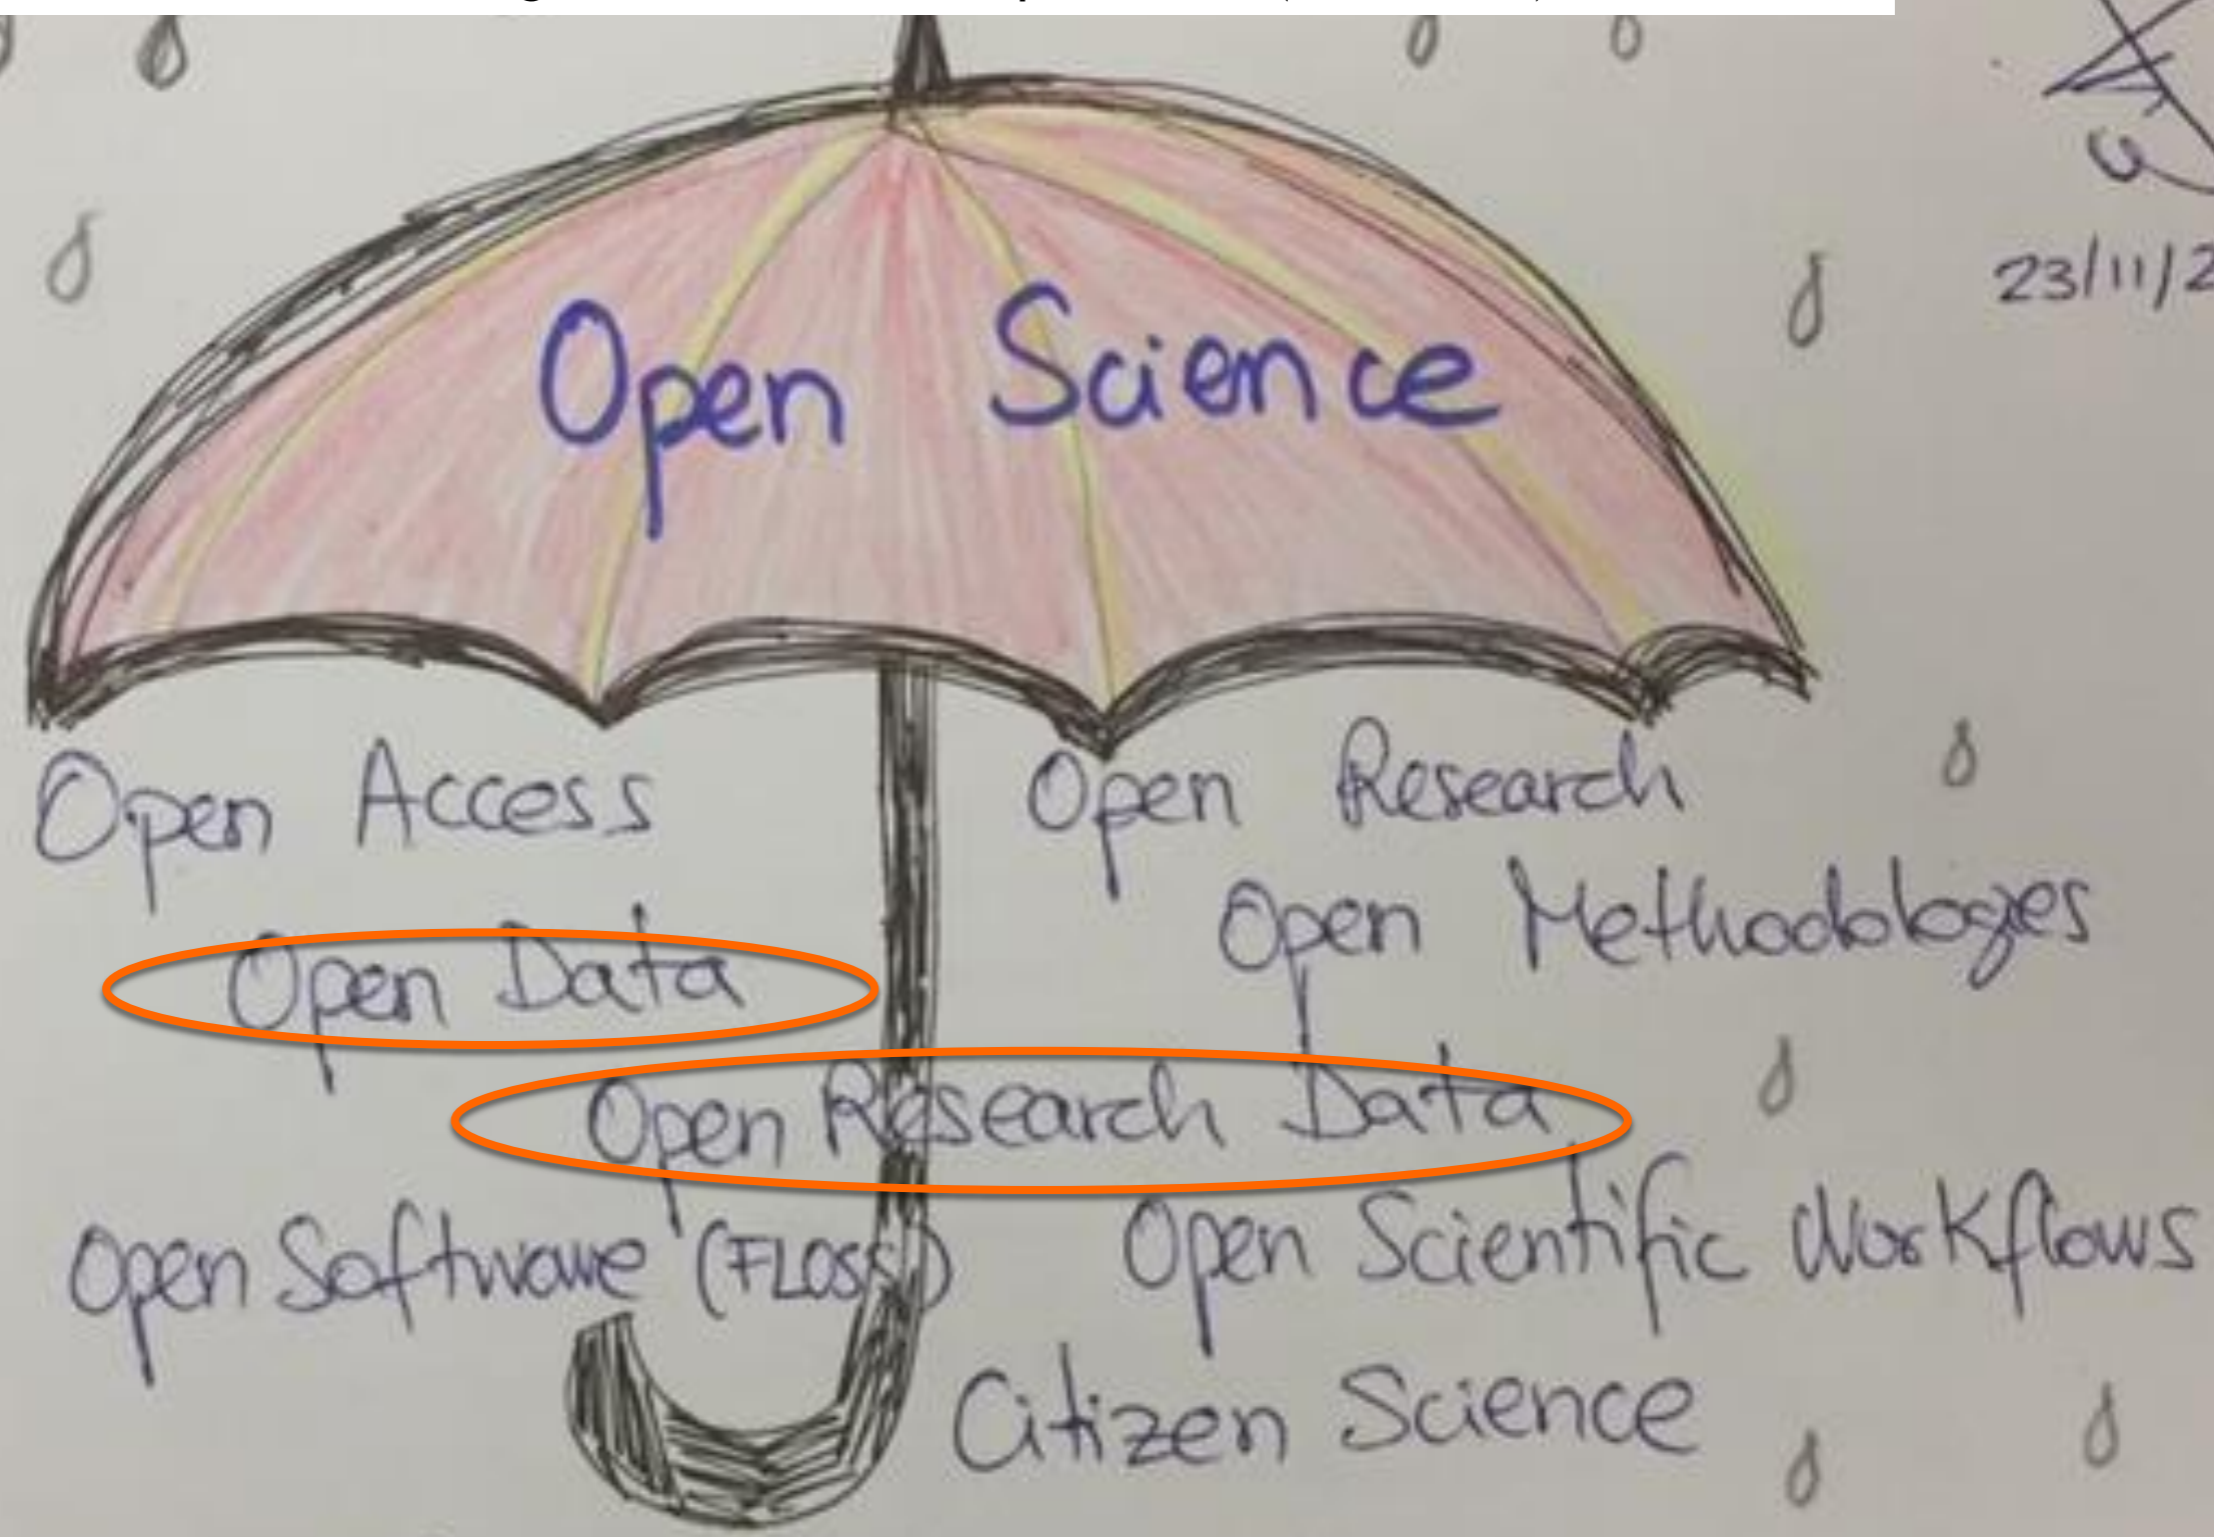 Open Science
23/11/2
Open Access
Open Research
Open Methodologies
Open Data
Open Research Data
Open Software (FLOSS)
Open Scientific Workflows
Citizen Science